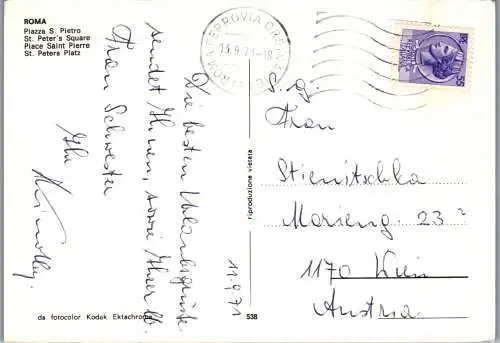 ROMA
Piazza S. Pietro
St. Peter's Square
Place Saint Pierre
St. Peters Platz
11.9.71
Die besten Urlaubsgrüße
sendet Ihnen, sowie Ihrer lb.
Frau Schwester
Ihr
S. g.
Frau
Stienitschka
Marieng. 23
1170 Wien
Austria
riproduzione vietata
da fotocolor Kodak Ektachrome
538